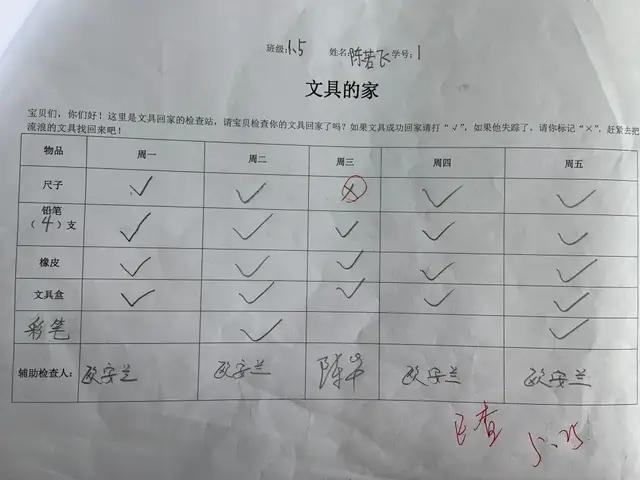 班级:1.5 姓名:陈若飞 学号:1
文具的家
宝贝们，你们好！这里是文具回家的检查站，请宝贝检查你的文具回家了吗？如果文具成功回家请打“√”，如果他失踪了，请你标记“×”，赶紧去把
流浪的文具找回来吧！
物品 周一 周二 周三 周四 周五
尺子 √ √ × √ √
铅笔
（4）支 √ √ √ √ √
橡皮 √ √ √ √ √
文具盒 √ √ √ √ √
彩笔 √ √
辅助检查人: 欧安兰 欧安兰 陈华 欧安兰 欧安兰
已查 5.25